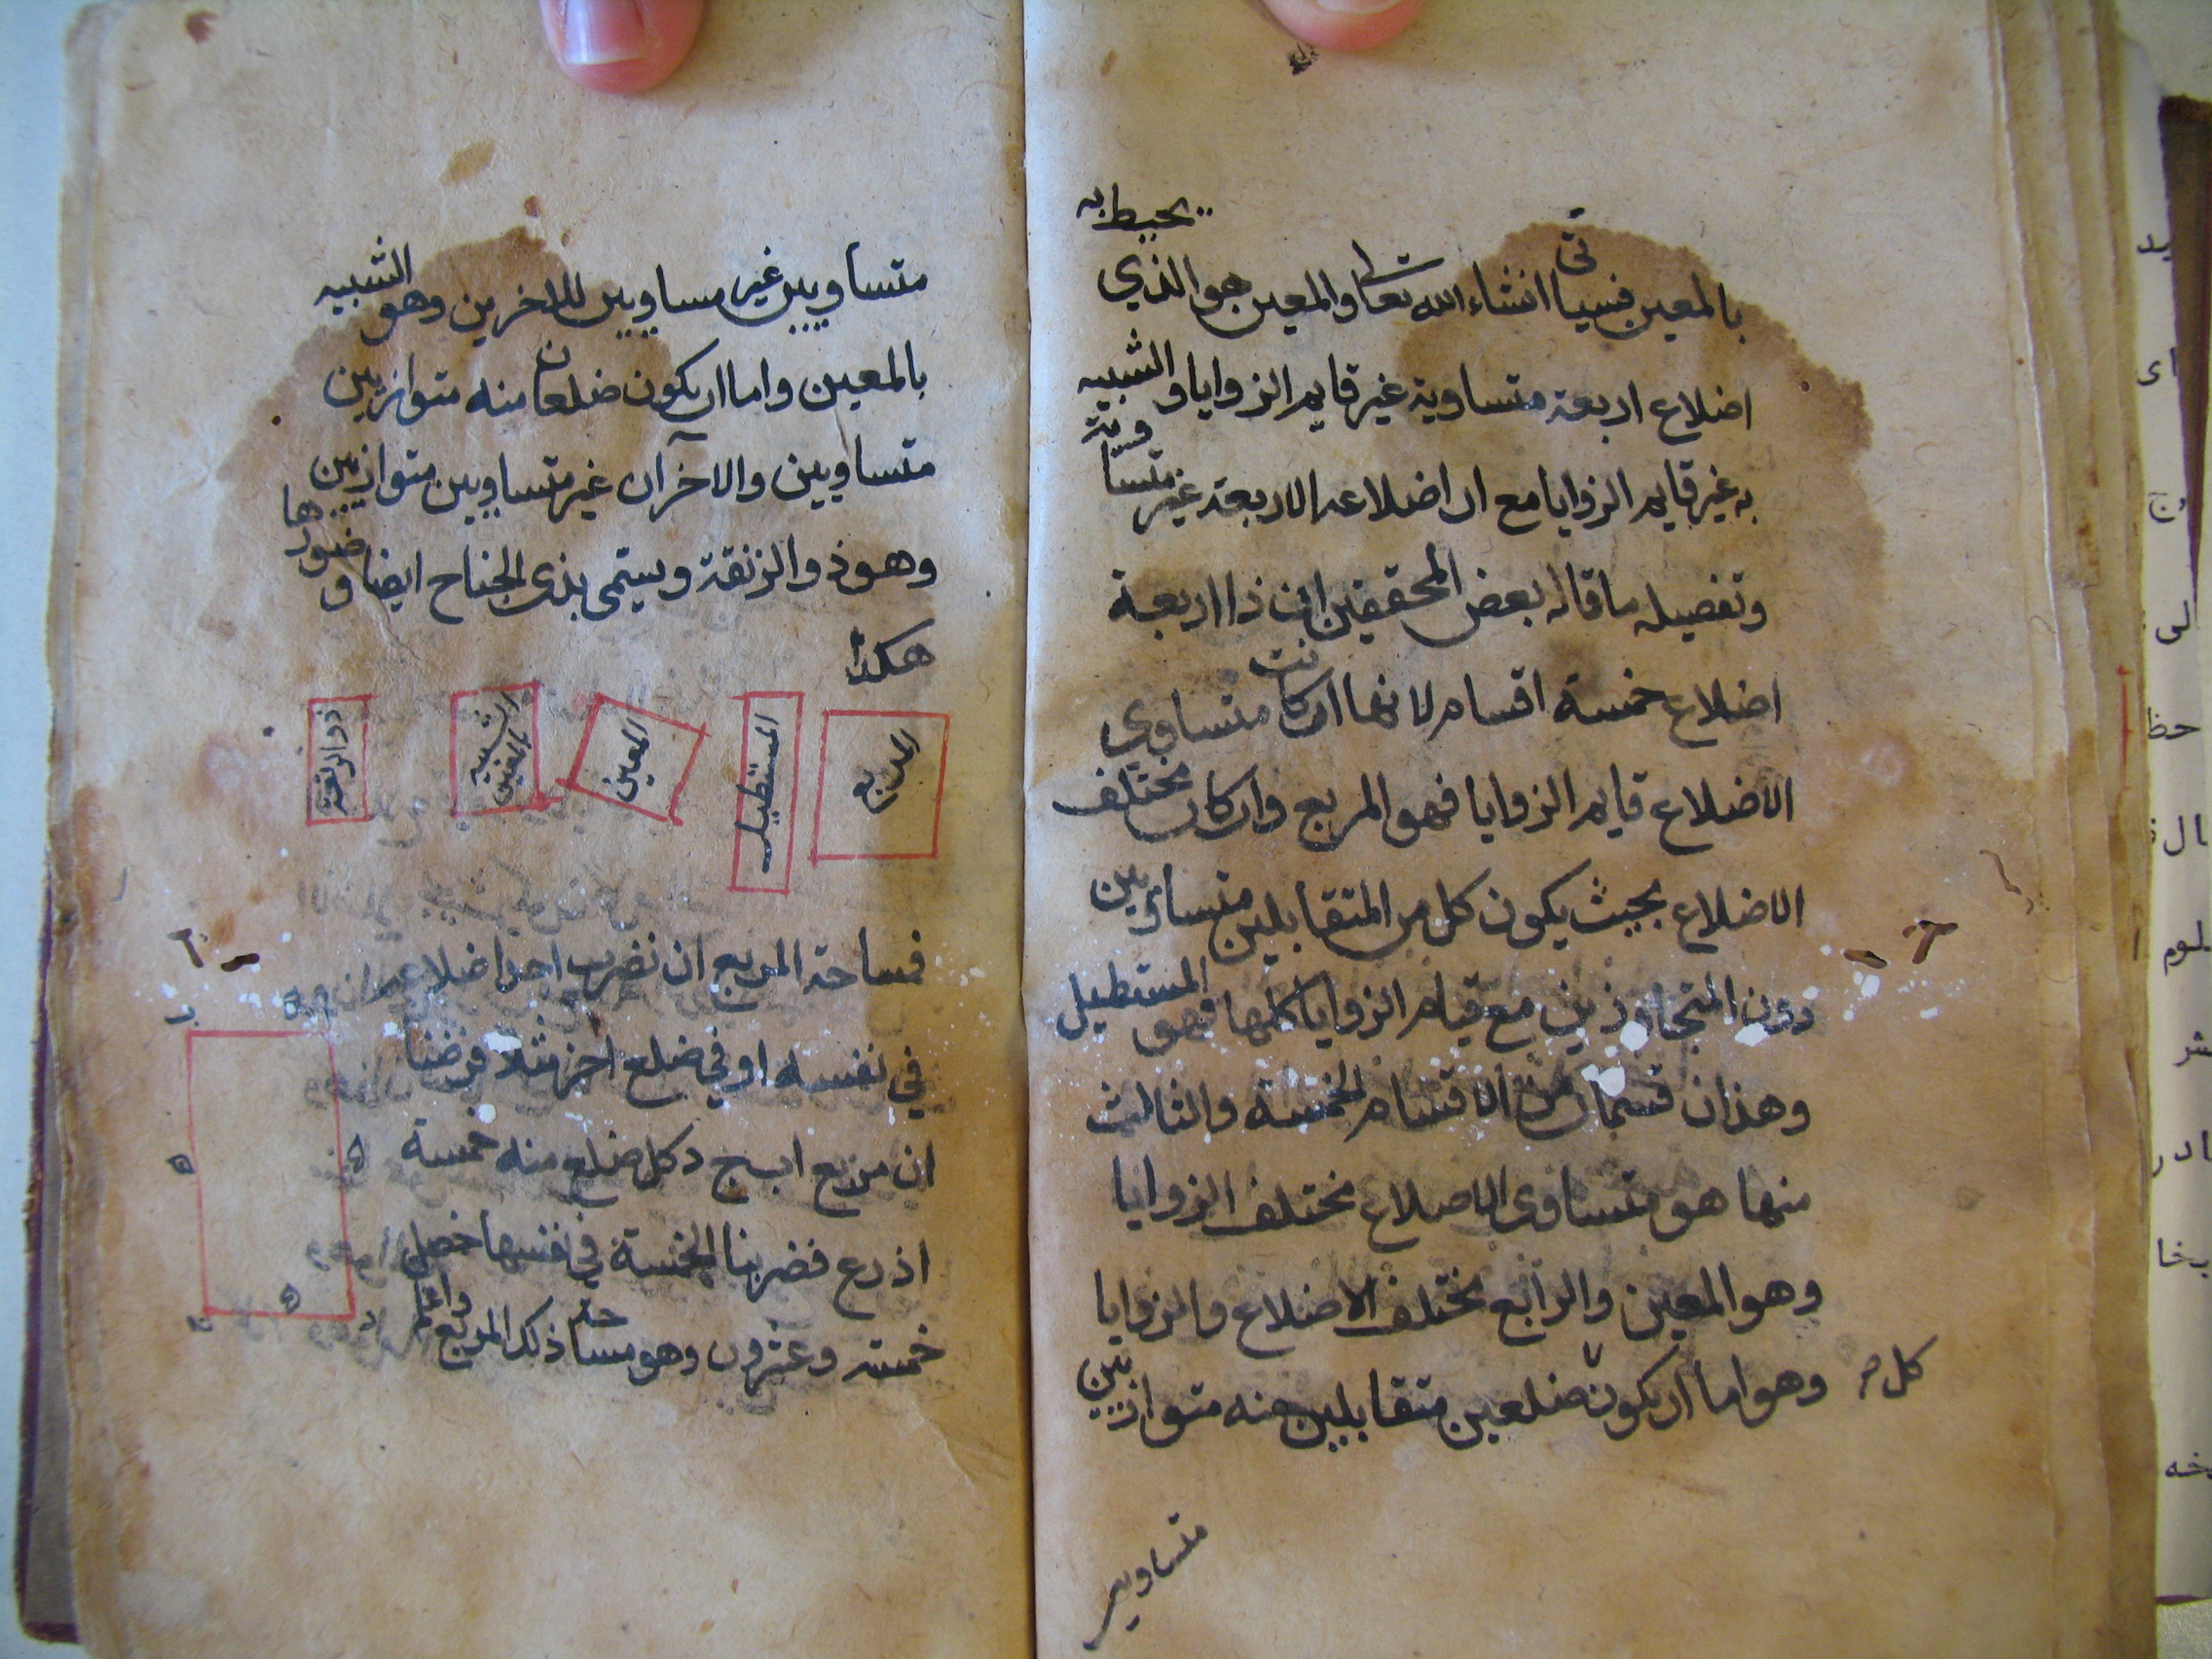 بالمعين فسياتى انشاء الله تعالى والمعين هو الذي يحيط به
اضلاع اربعة متساوية غير قايم الزوايا و الشبيه
به غير قايم الزوايا مع ان اضلاعه الاربعة غير متساوية
وتفصيله ما قاله بعض المحققين ان ذا اربعة
اضلاع خمسة اقسام لانها ان كانت متساوي
الاضلاع قايم الزوايا فهو المربع وان كان مختلف
الاضلاع بحيث يكون كل من المتقابلين متساويين
دون المتجاوزين مع قيام الزوايا كلها فهو المستطيل
وهذان قسمان من الاقسام الخمسة والثالث
منها هو متساوى الاضلاع مختلف الزوايا
وهو المعين والرابع مختلف الاضلاع والزوايا
وهو اما ان يكون ضلعين متقابلين منه متوازيين
كل
متساويين
متساويين غير مساويين للاخرين وهو الشبيه
بالمعين واما ان يكون ضلعان منه متوازيين
متساويين والآخران غير متساويين متوازيين
وهو ذو الزنقة ويسمى بذى الجناح ايضا و صورها
هكذا
المربع
المستطيل
المعين
الشبيه بالمعين
ذو الزنقة
فمساحة المربع ان نضرب احد اضلاعه
في نفسه او في ضلع اخر مثلا فرضنا
ان مربع ا ب ج د كل ضلع منه خمسة
اذرع فضربنا الخمسة في نفسها حصل
خمسة وعشرون وهو مساحة ذلك المربع واعلم